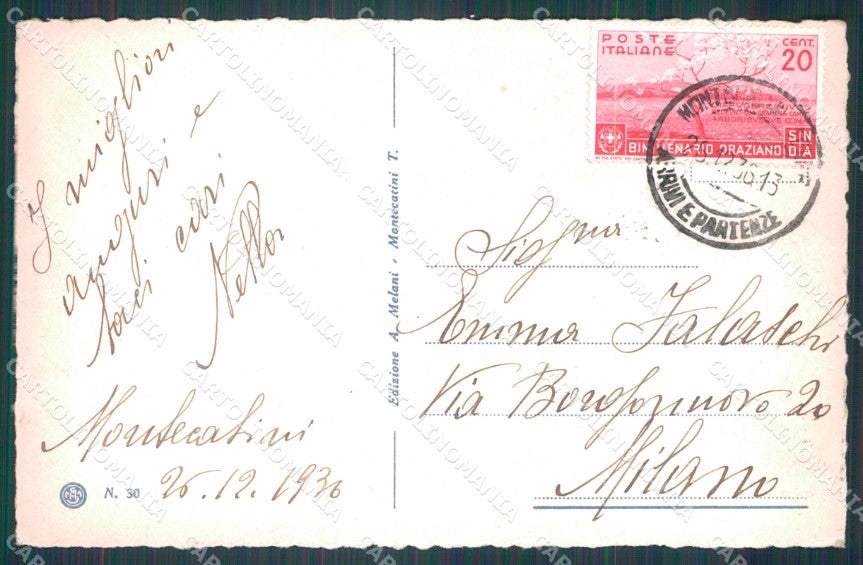 I migliori
auguri e
baci cari
Nella
Montecatini
26.12.1936
N. 30
Edizione A. Melani - Montecatini T.
POSTE
ITALIANE
CENT.
20
BIMILLENARIO ORAZIANO
ARRIVI E PARTENZE
Sig.na
Emma Falaschi
Via Borgonuovo 20
Milano
CARTOLINOMANIA